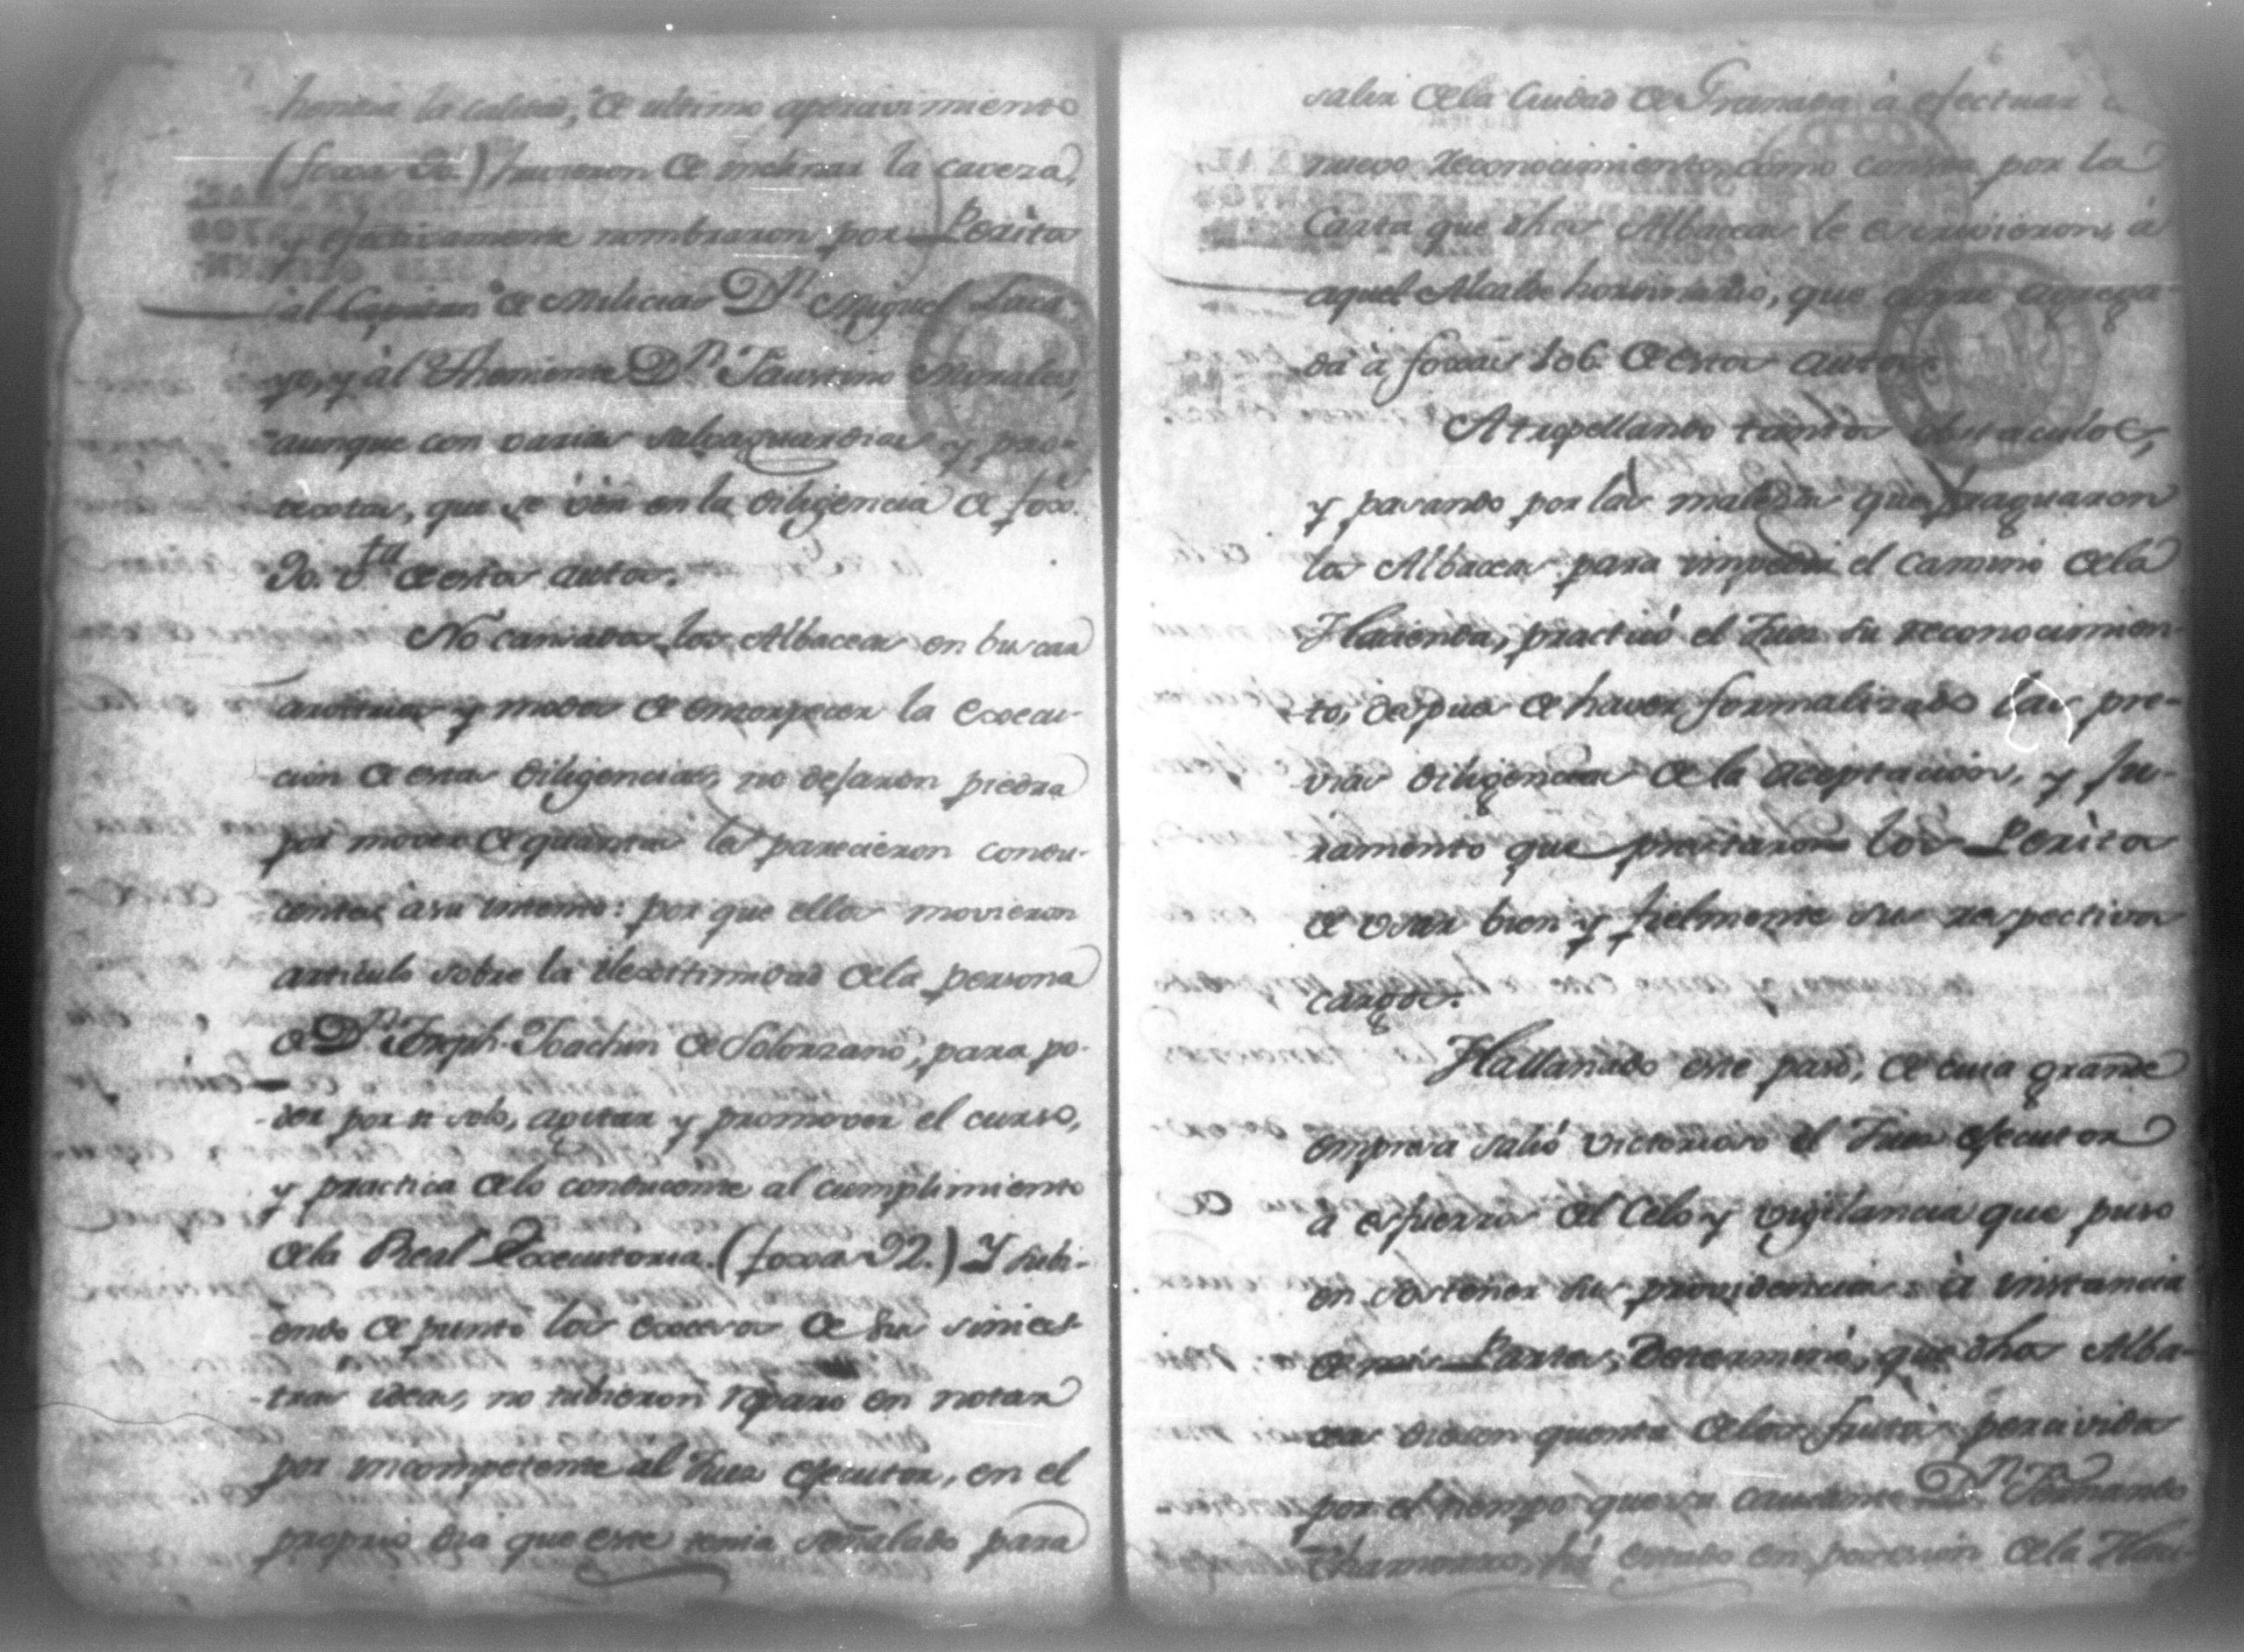 la calidad, de ultimo apercivimiento
(foxas 90) huvieron de inclinar la caveza,
y efectivamente nombraron por Peritos
al Capitan de Milicias Dn. Miguel Laca-
yo, y al Theniente Dn. Faustino Morales,
aunque con varias salvaguardias y pro-
textos, que se vén en la diligencia de fox.
90. vta de estos autos.
No cansados los Albaceas en buscar
arvitrios y modos de entorpecer la execu-
cion de estas diligencias, no dejaron piedra
por mover de quantas les parecieron condu-
centes à su intento: por que ellos movieron
articulo sobre la ilexitimidad dela persona
de Dn. Joseph Joachin de Solorzano, para po-
der por si solo, agitar y promover el curso,
y practica delo conducente al cumplimiento
dela Real Executoria. (foxas 92.) Y subi-
endo de punto los excesos de su sinies-
tras ideas, no tubieron reparo en notar
por incompetente al Juez executor, en el
proprio dia que este tenia señalado para
salir dela Ciudad de Granada à efectuar
nuevo reconocimiento, como consta por la
Carta que dhos Albaceas le escrivieron, à
aquel Alcalde hordinario, que agrega-
da à foxas 106. de estos autos.
Atropellando tantos obstaculos,
y pasando por las malezas que fraguaron
los Albaceas para impedir el camino dela
Hacienda, practicó el Juez su reconocimien-
to, despues de haver formalizado las pre-
vias diligencias dela aceptacion, y Ju-
ramento que prestaron los Peritos
de usar bien y fielmente sus respectivos
cargos.
Hallanado este paso, de cuia grande
empresa salió victorioso el Juez executor
a esfuerzos del Celo y vigilancia que puso
en sostener sus providencias: à instancia
de mis Partes, Determinó, que dhos Alba-
ceas diesen quenta delos frutos percividos
por el tiempo que su causante Dn. Fernando
Chamorro, há estado en posesion dela Haci-